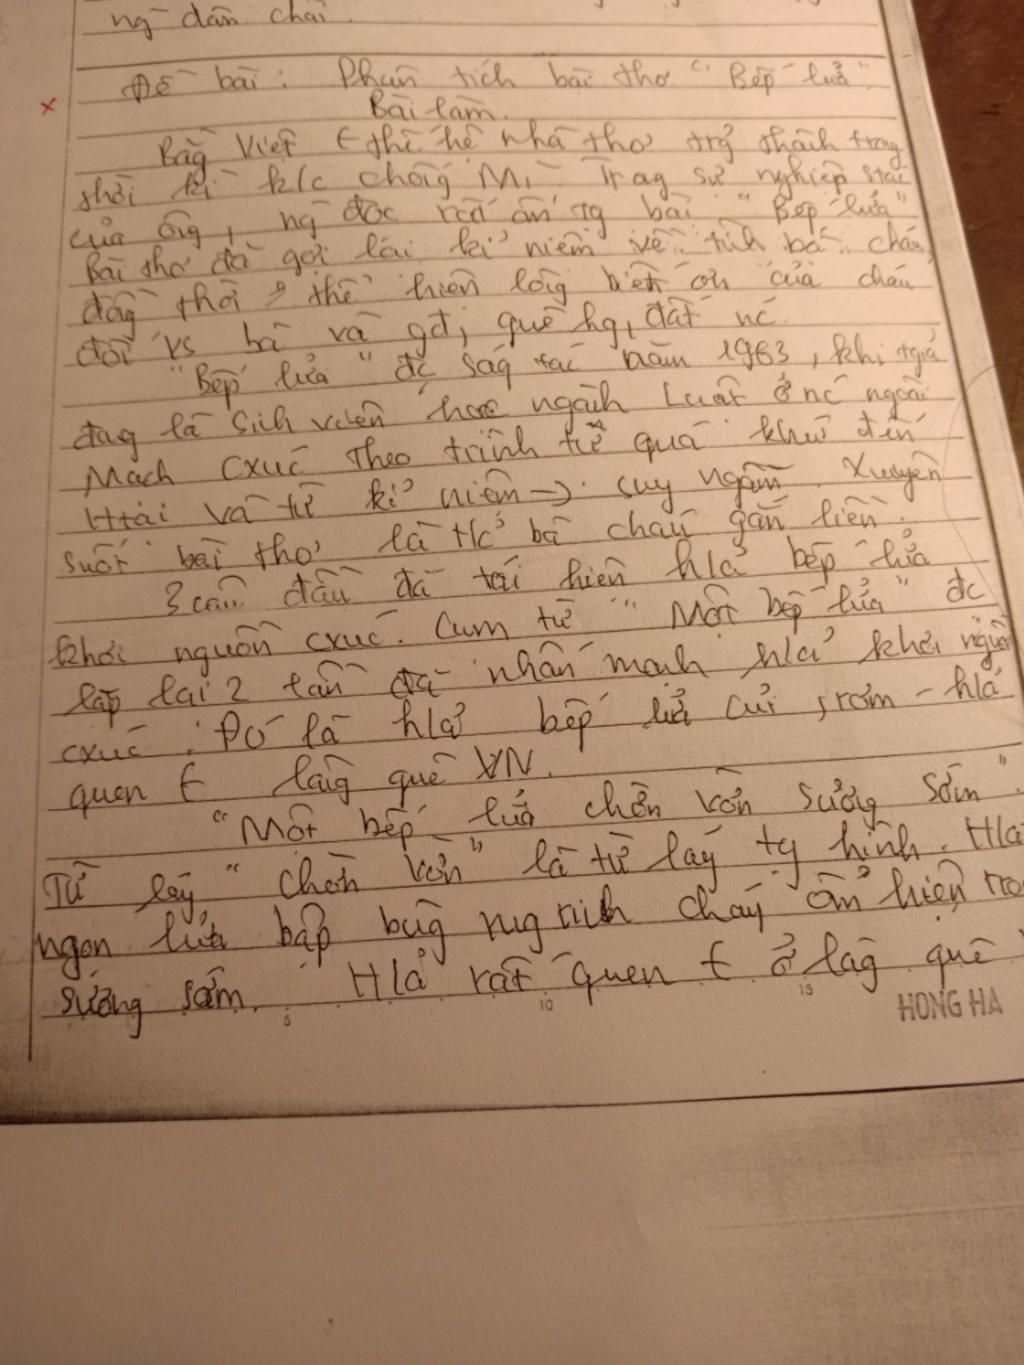 ng dân chài.
Đề bài: Phân tích bài thơ "Bếp lửa".
Bài làm.
Bằg Việt € thế hệ nhà thơ trg thành trong
thời kì k/c chốg Mĩ. Trog sự nghiệp stác
của ôg, ng đọc rất ấn tg bài "Bếp lửa"
Bài thơ đã gợi lại kỉ niệm về tình bà cháu,
đồg thời thể hiện lòg biết ơn của cháu
đối vs bà và gđ, quê hg, đất nc.
"Bếp lửa" đc ság tác năm 1963, khi tgiả
đag là sinh viên học ngàh Luật ở nc ngoài
Mạch cxúc theo trình tự quá khứ đến
Htại và từ kỉ niệm → suy ngẫm. Xuyên
suốt bài thơ là H/ả bà cháu gắn liền.
3 câu đầu đã tái hiện h/ả bếp lửa
khơi nguồn cxúc. Cụm từ "Một bếp lửa" đc
lặp lại 2 lần đã nhấn mạnh h/ả khơi nguồn
cxúc. Đó là h/ả bếp lửa củi, rơm - h/ả
quen € làg quê VN.
"Một bếp lửa chờn vờn sương sớm".
Từ láy "chờn vờn" là từ láy tg hình. H/ả
ngọn lửa bập bùg rug rinh cháy ẩn hiện tro
sương sớm. H/ả rất quen € ở làg quê
5 10 15
HONG HA